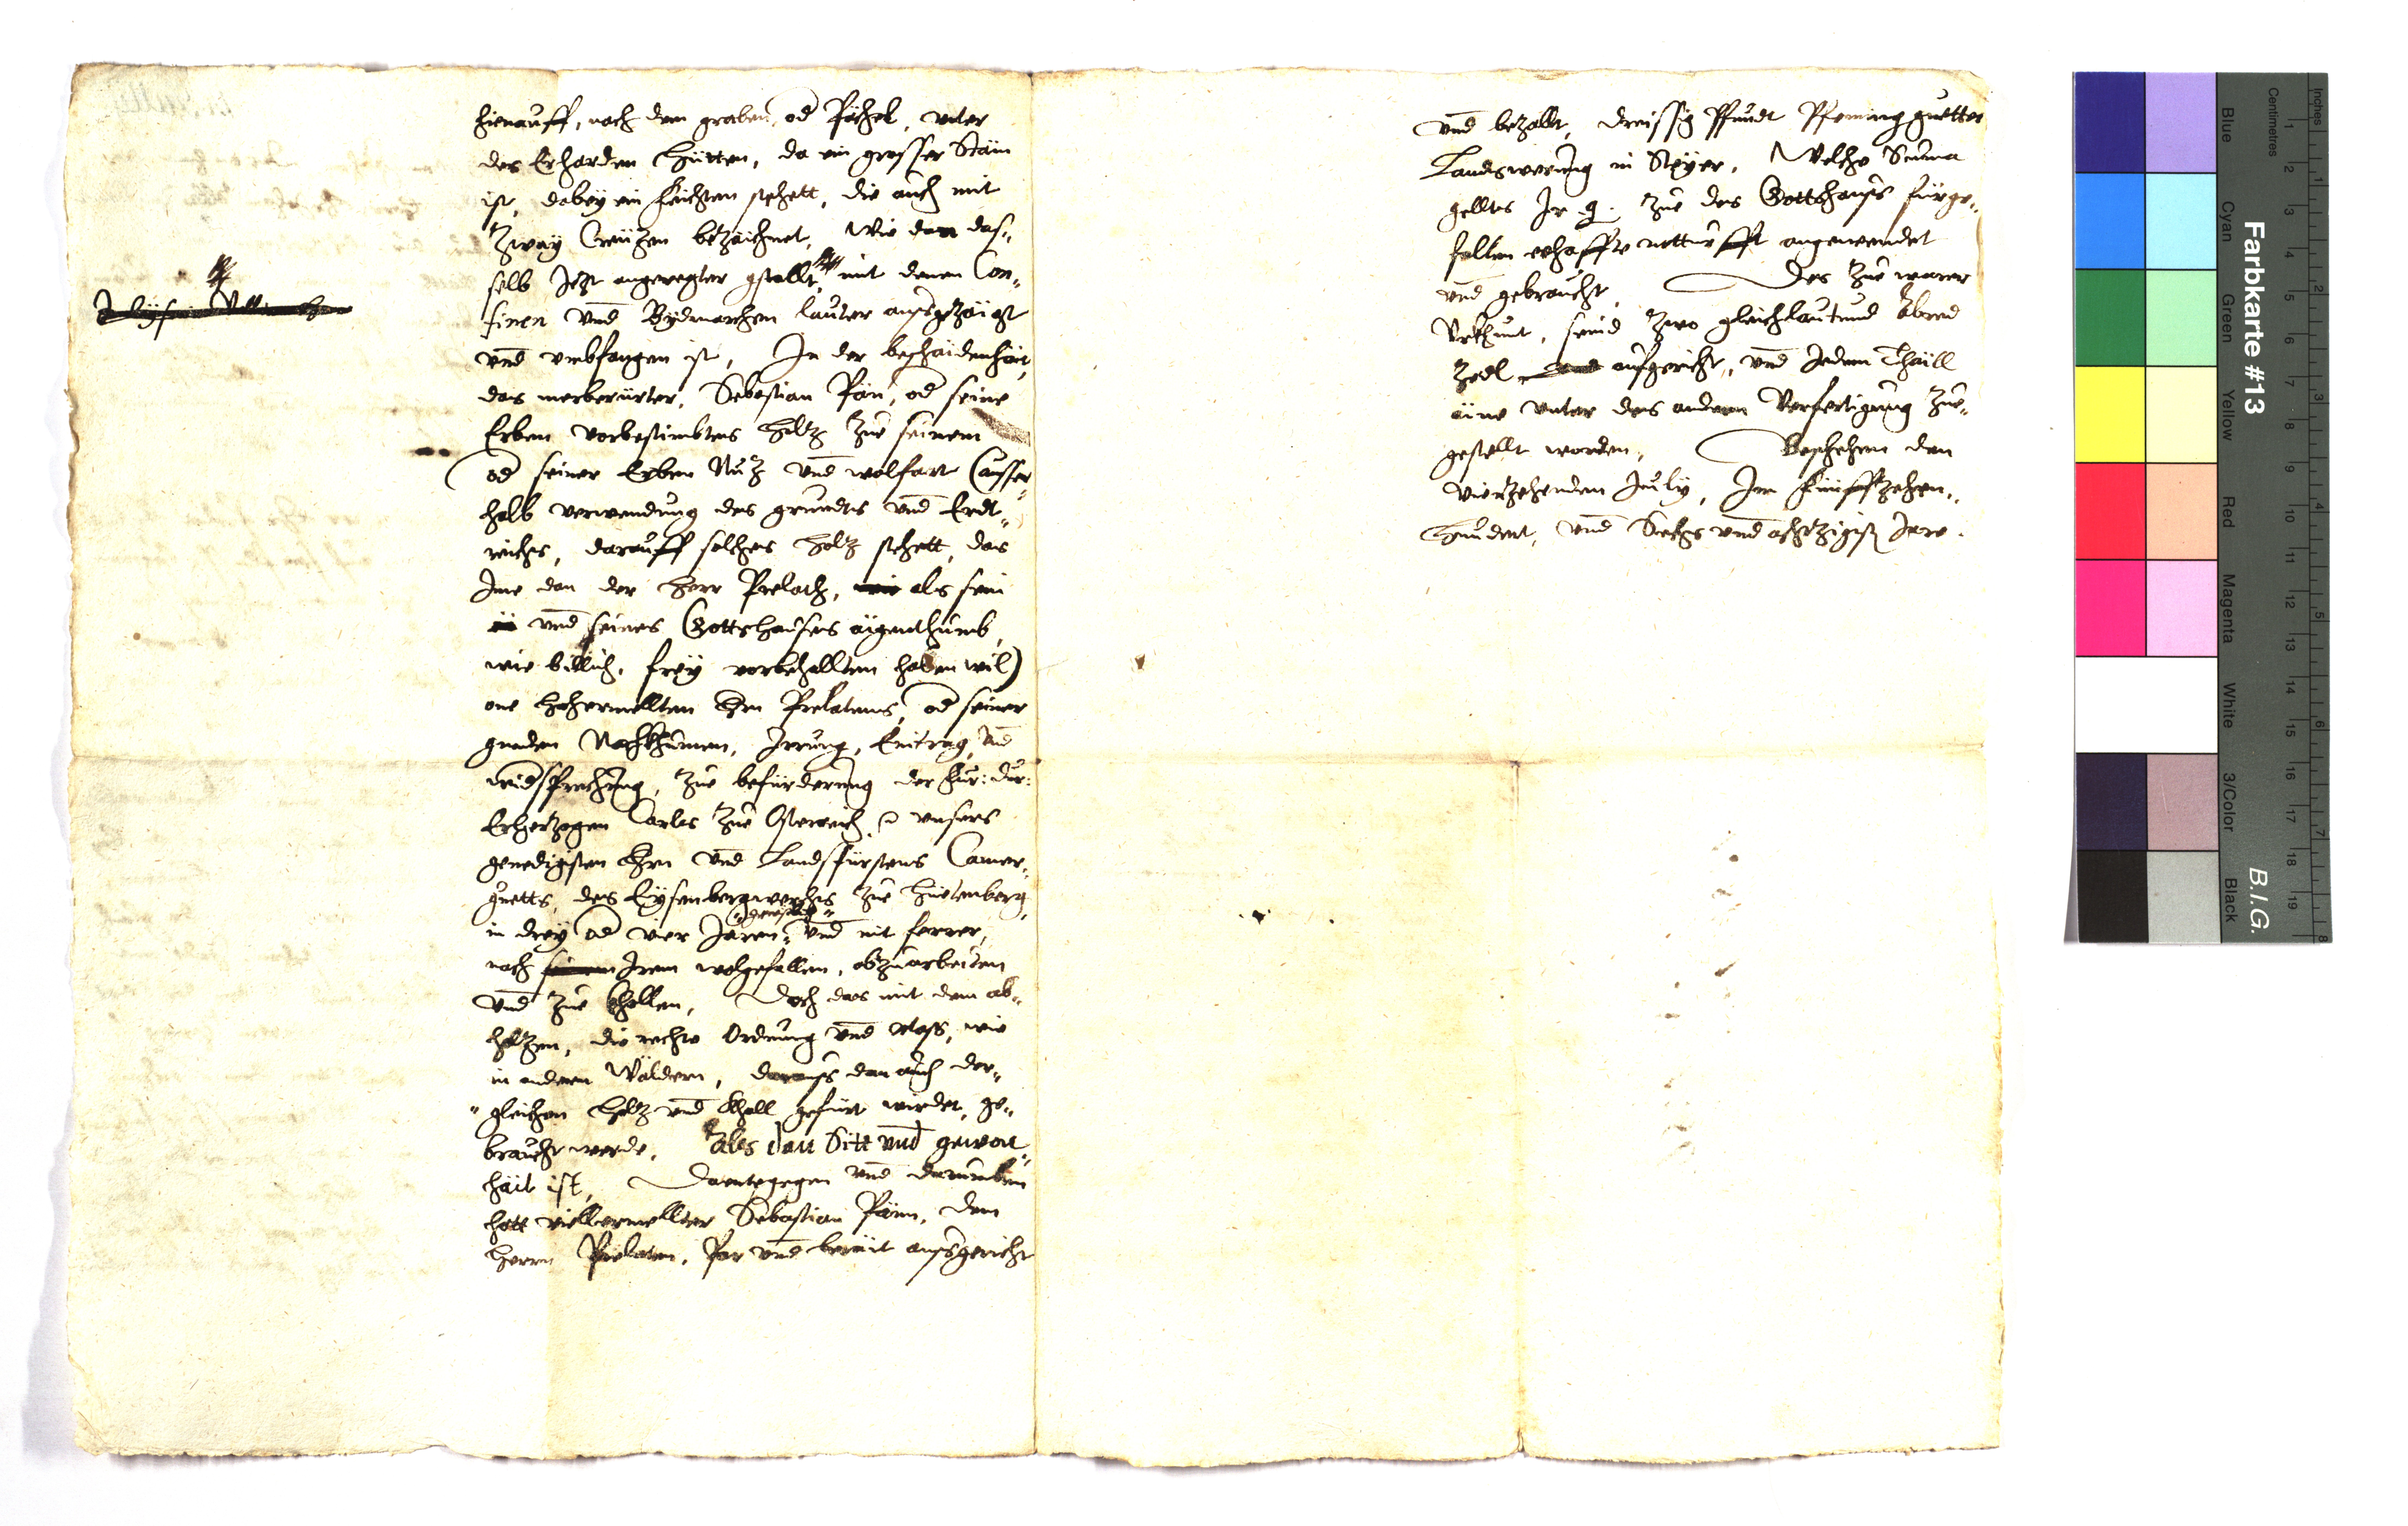 hienauff, nach dem graben, od Pächel, vnter
des Erharden Hütten, da ein grosser Stäin
ist, dabey ein feichten stehett, die auch mit
Zway Creützen bezäichnet, Wie dan das„
selb Jezt angeregter gstallt, mit denen Con„
finen vnd Pydmarchen lauter aufsgezäigt
vnd vmbfangen ist, In der beschäidenhäit,
das merberürter, Sebastian Pän, od seine
Erben vorbestimbtes holtz zue seinem
od seiner Erben Nuz vnd wolfart (ausser„
halb verwendung des grundts vnd Erdt„
reichs, darauff solches holtz stehett, das
Jme dan der herr Prelath, als sein
vnd seines Gottshauses äigenthumb,
wie billich, frey vorbehallten haben wil)
one hochermellten Hrn Prelatens, od seiner
gnaden Nachkhumen, Jrrung, Eintrag, vnd
widsprechung, zue befürderung der Fur: Dur:
Erhertzogen Carls zue Osterreich vnsers
genedigisten Hrn vnd Landsfürstens Camer„
guetts, des Eysenbergwerchs zue Hüetenberg,
in drey od vier Jaren, vnd nit ferrer,
nach Jrem wolgefallen, abzuarbeiten
vnd zue kholen, Doch das mit dem ab„
holtzen, die rechte Ordnung vnd Mass, wie
in andern Wäldern, daraufs dan auch der„
„gleichen holtz vnd Kholl gefürt wirdet, ge„
braucht werde, Als dan Sitt vnd gewon„
häit ist, Daentgegen vnd darumben
hatt villermellter Sebastian Pänn, dem
herrn Prelaten, Par vnd beräit aufsgericht
vnd bezallt, dreissig Pfundt Pfening guetter
Landtswerung in Steyer, Welche Summa
gelltes Jr g. zue des Gottshaufs fürge„
fallen ehaffte notturfft angewendet
vnd gebraucht. Des zue warer
Vrkhunt, seind zwo gleichlautund Abred
Zedl aufgericht, vnd Jedem Thäill
äine vnter des andern Verfertigung zue„
gestellt worden, Beschehen den
vierzehenden July, Jm Fünffzehen„
hundert, vnd Sechs vnd achtzigist Jare.